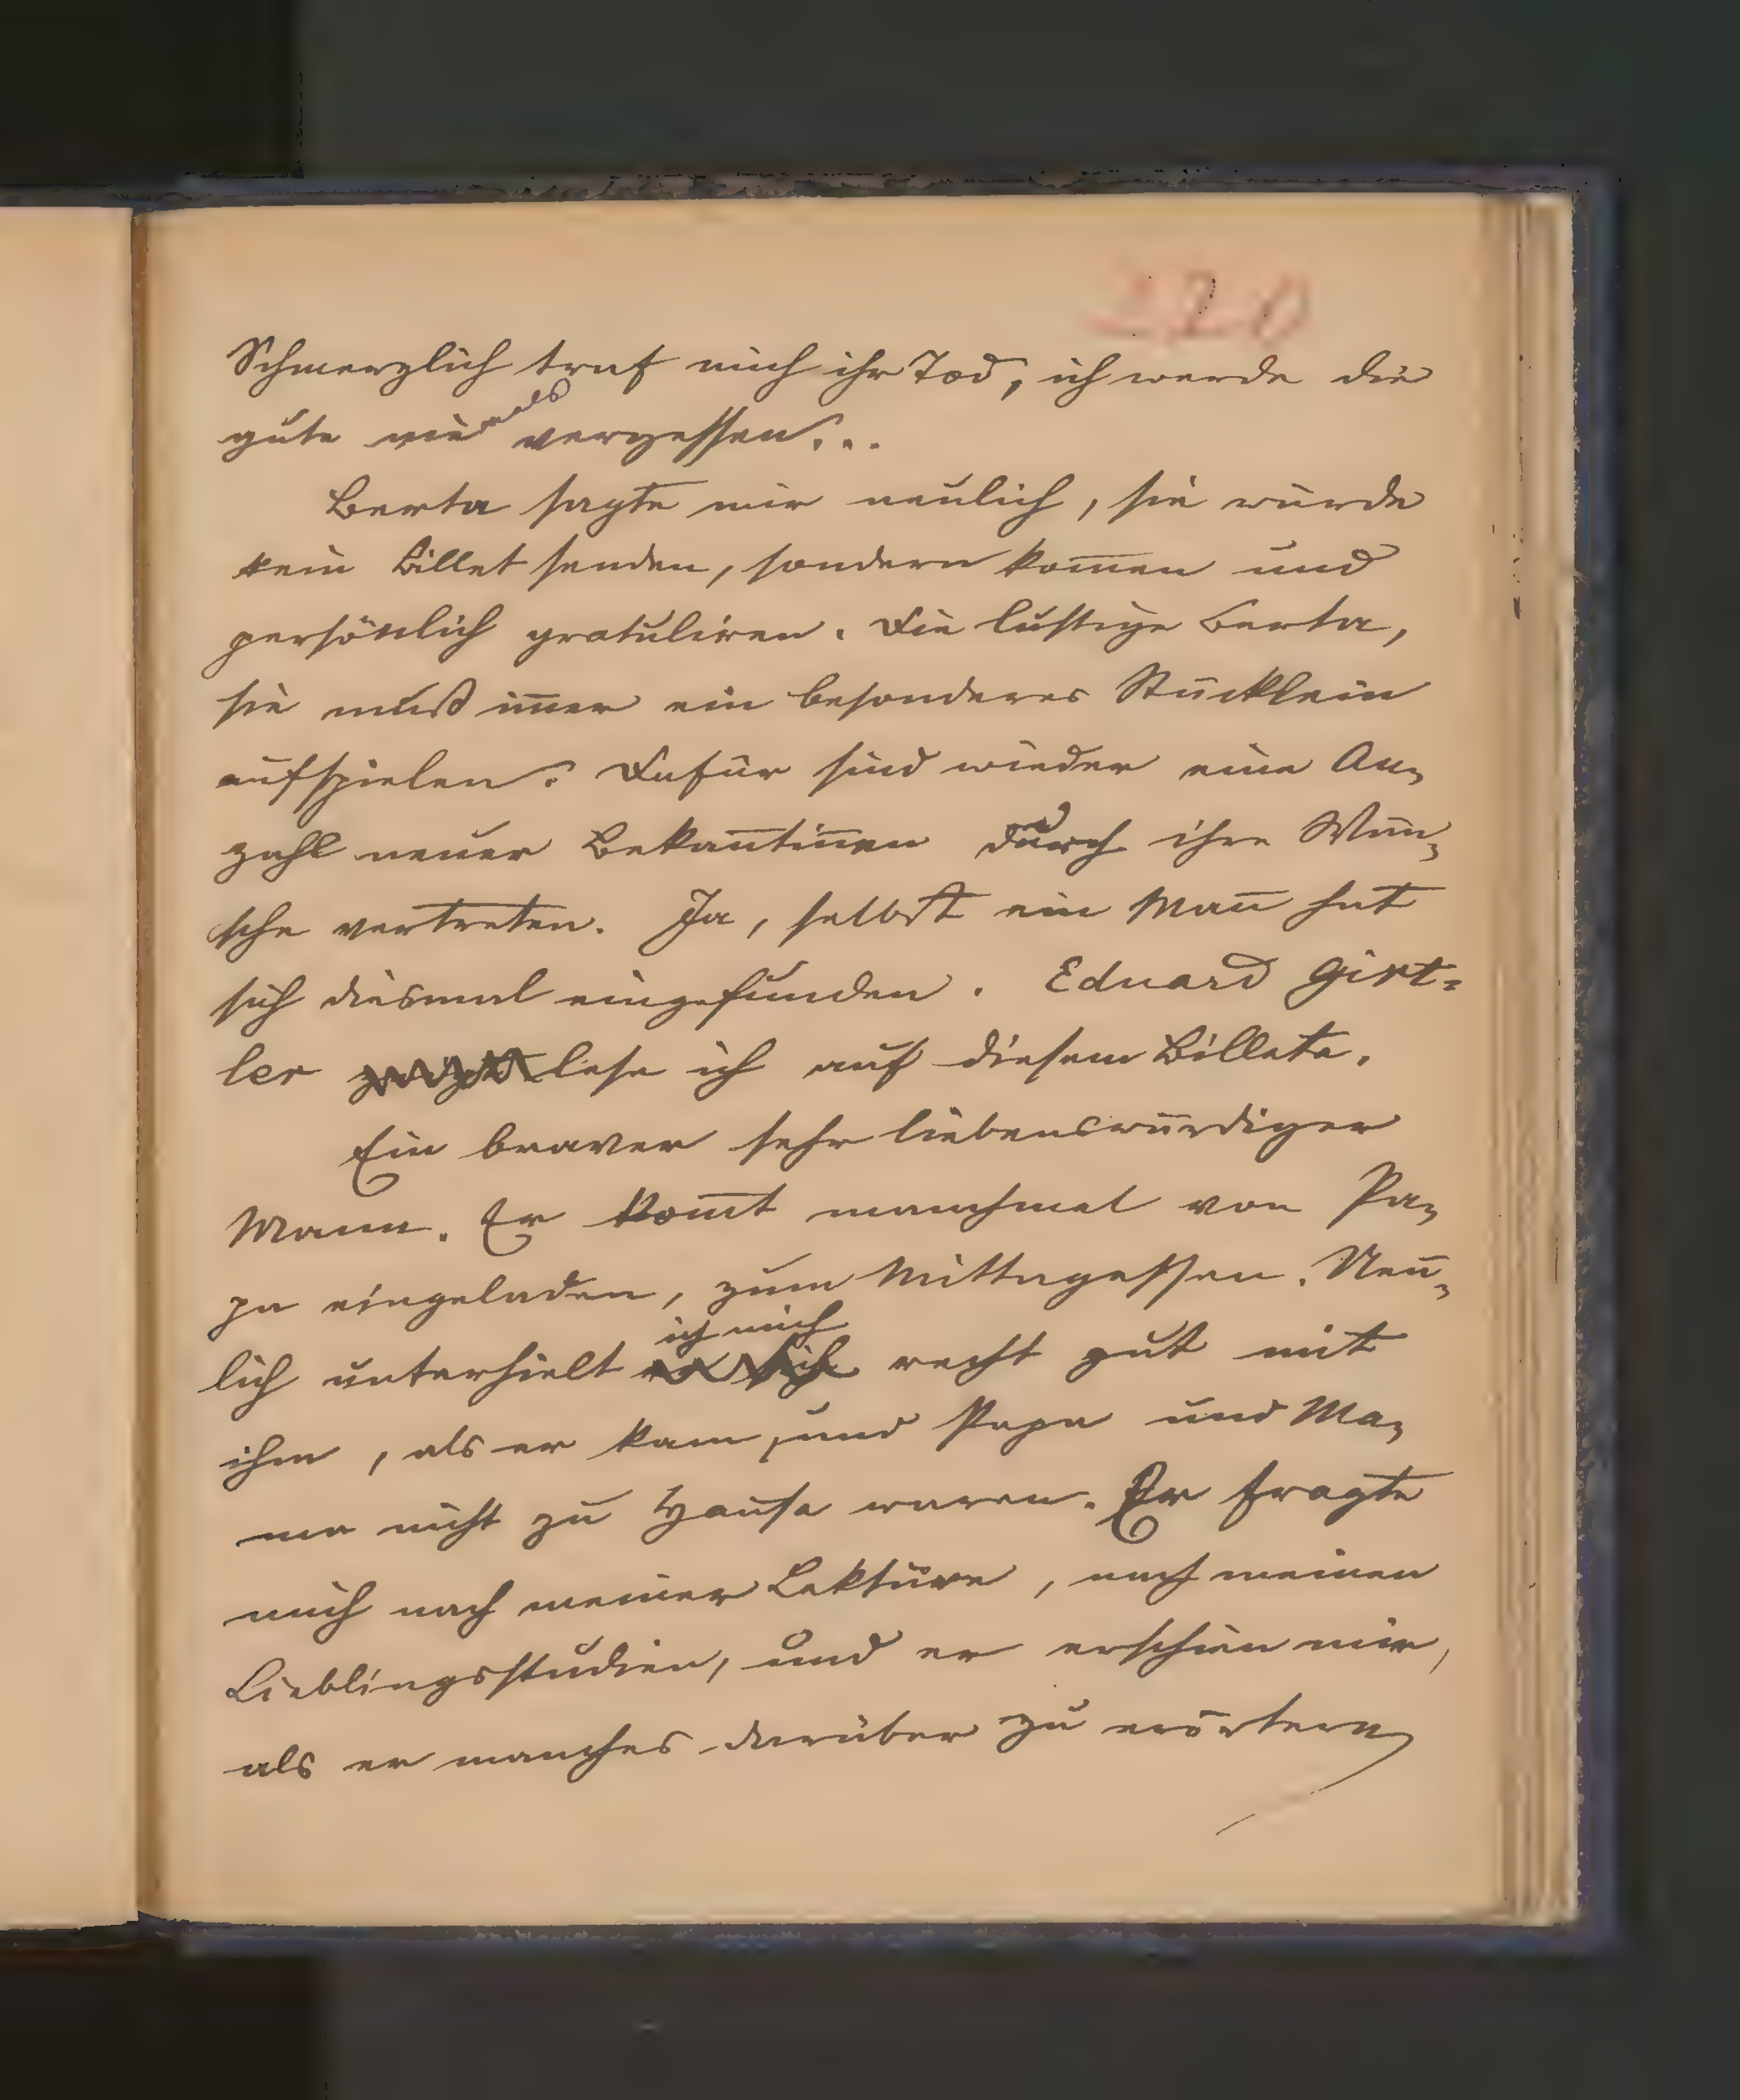 220
Schmerzlich traf mich ihr Tod, ich werde die
gute niemals vergessen...
Berta sagte mir neulich, sie würde
kein Billet senden, sondern kom̅en und
persönlich gratuliren. Die lustige Berta,
sie muß im̅er ein besonderes Stücklein
aufspielen. Dafür sind wieder eine An-
zahl neuer Bekan̅tin̅en durch ihre Wün-
sche vertreten. Ja, selbst ein Man̅ hat
sich diesmal eingefunden. Eduard Girt-
ler lese ich auf diesem Billete.
Ein braver sehr liebenswürdiger
Mann. Er kom̅t manchmal von Pa-
pa eingeladen, zum Mittagessen. Neu-
lich unterhielt ich mich recht gut mit
ihm, als er kam, und Papa und Ma-
ma nicht zu Hause waren. Er fragte
mich nach meiner Lektüre, nach meinen
Lieblingsstudien, und er erschien mir,
als er manches darüber zu erörtern